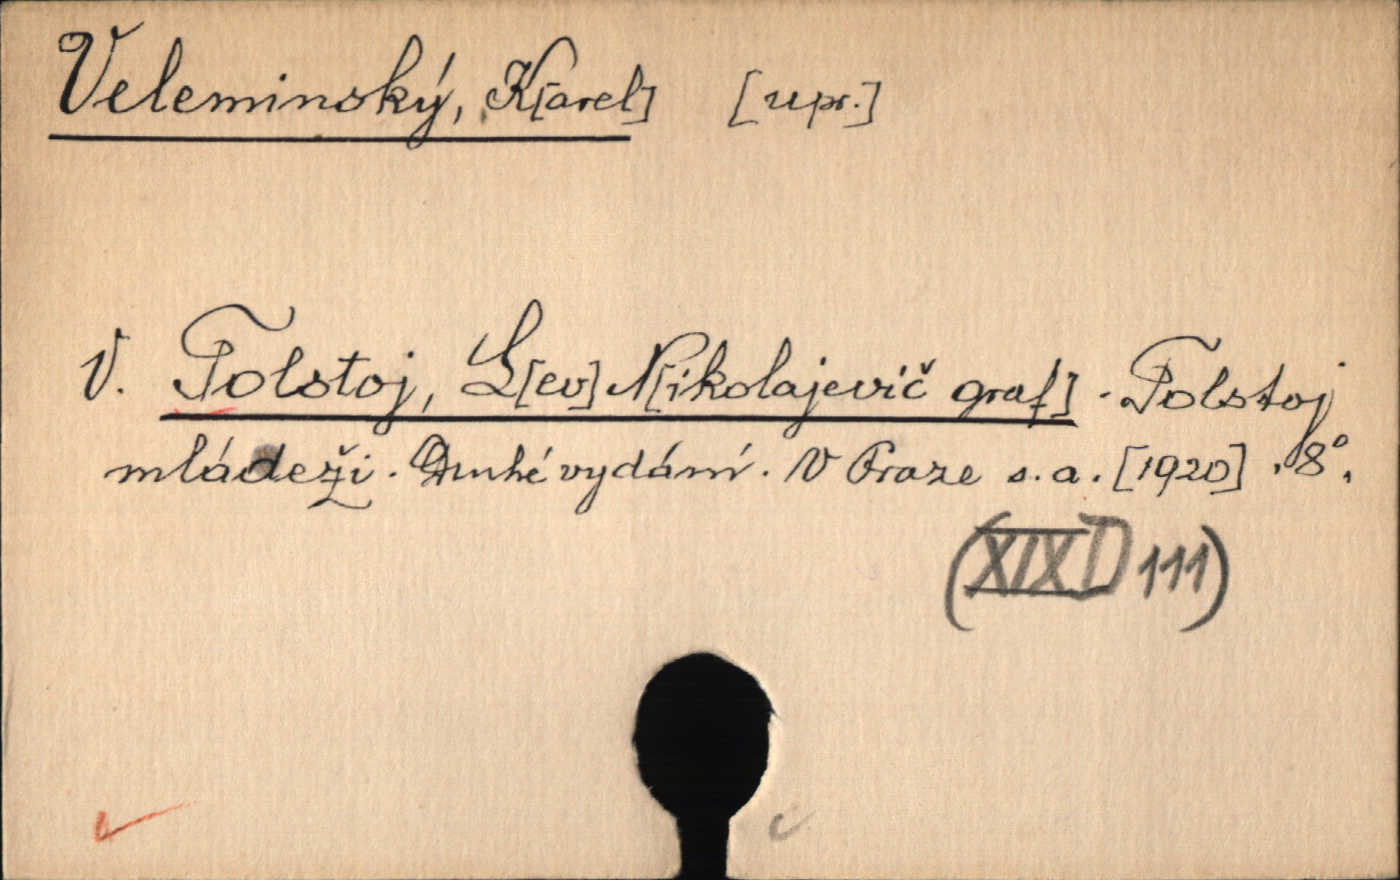 Veleminský, K[arel] [upr.]
V. Tolstoj, L[ev] N[ikolajevič graf] . Tolstoj
mládeži . Druhé vydání . V Praze s. a. [1920] . 8°.
(XIX D 111)